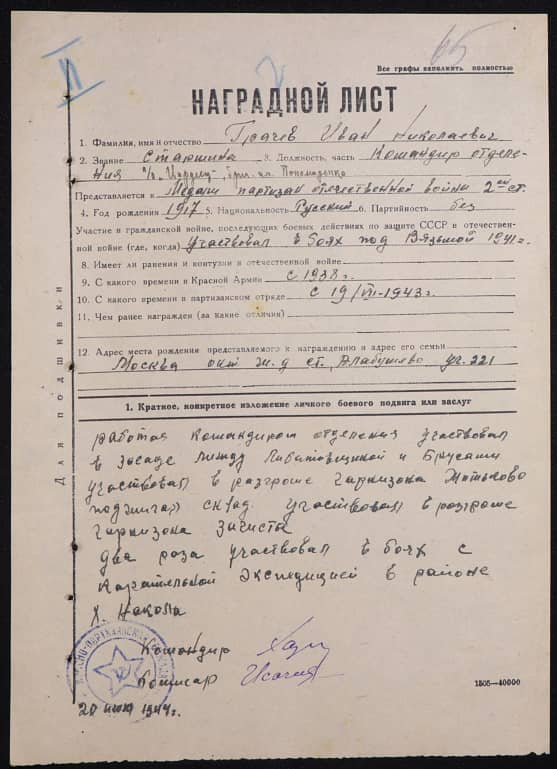 II
65
Все графы заполнить полностью
НАГРАДНОЙ ЛИСТ
1. Фамилия, имя и отчество Грачев Иван Николаевич
2. Звание старшина 3. Должность, часть Командир отделе-
ния
Представляется к Медали партизан отечественной войны 2ой ст.
4. Год рождения 1917 5. Национальность Русский 6. Партийность без
Участие в гражданской войне, последующих боевых действиях по защите СССР в отечествен-
ной войне (где, когда) участвовал в боях под Вязьмой 1941г.
8. Имеет ли ранения и контузии в отечественной войне
9. С какого времени в Красной Армии с 1938г.
10. С какого времени в партизанском отряде с 19/VII-1943г.
11. Чем ранее награжден (за какие отличия)
12. Адрес места рождения представляемого к награждению и адрес его семьи
Москва окт ж.д ст. Алабушево 221
Для подшивки
1. Краткое, конкретное изложение личного боевого подвига или заслуг
работая командиром отделения участвовал
в засаде между и Брусами
участвовал в разгроме гарнизона
поджигал склад. участвовал в разгроме
гарнизона Зачисты
два раза участвовал в боях с
карательной экспедицией в районе
х. Накола
Командир
Комисар
20 1944г.
1505—40000